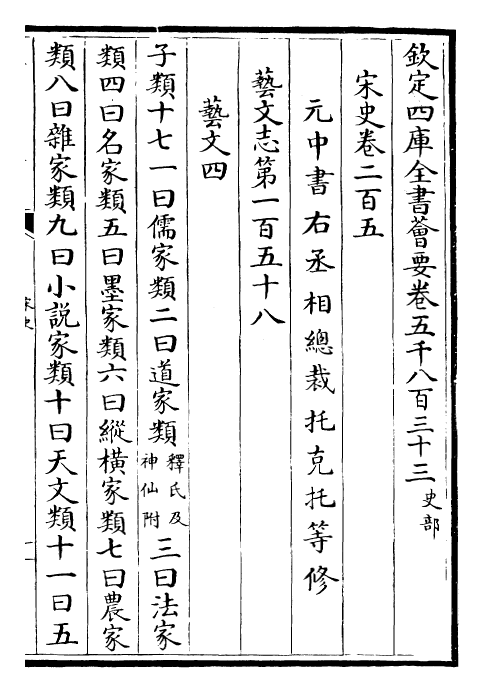 欽定四庫全書薈要卷五千八百三十三 史部
宋史卷二百五
元中書右丞相總裁托克托等修
藝文志第一百五十八
藝文四
子類十七一曰儒家類二曰道家類釋氏及神仙附三曰法家
類四曰名家類五曰墨家類六曰縱橫家類七曰農家
類八曰雜家類九曰小說家類十曰天文類十一曰五
宋史